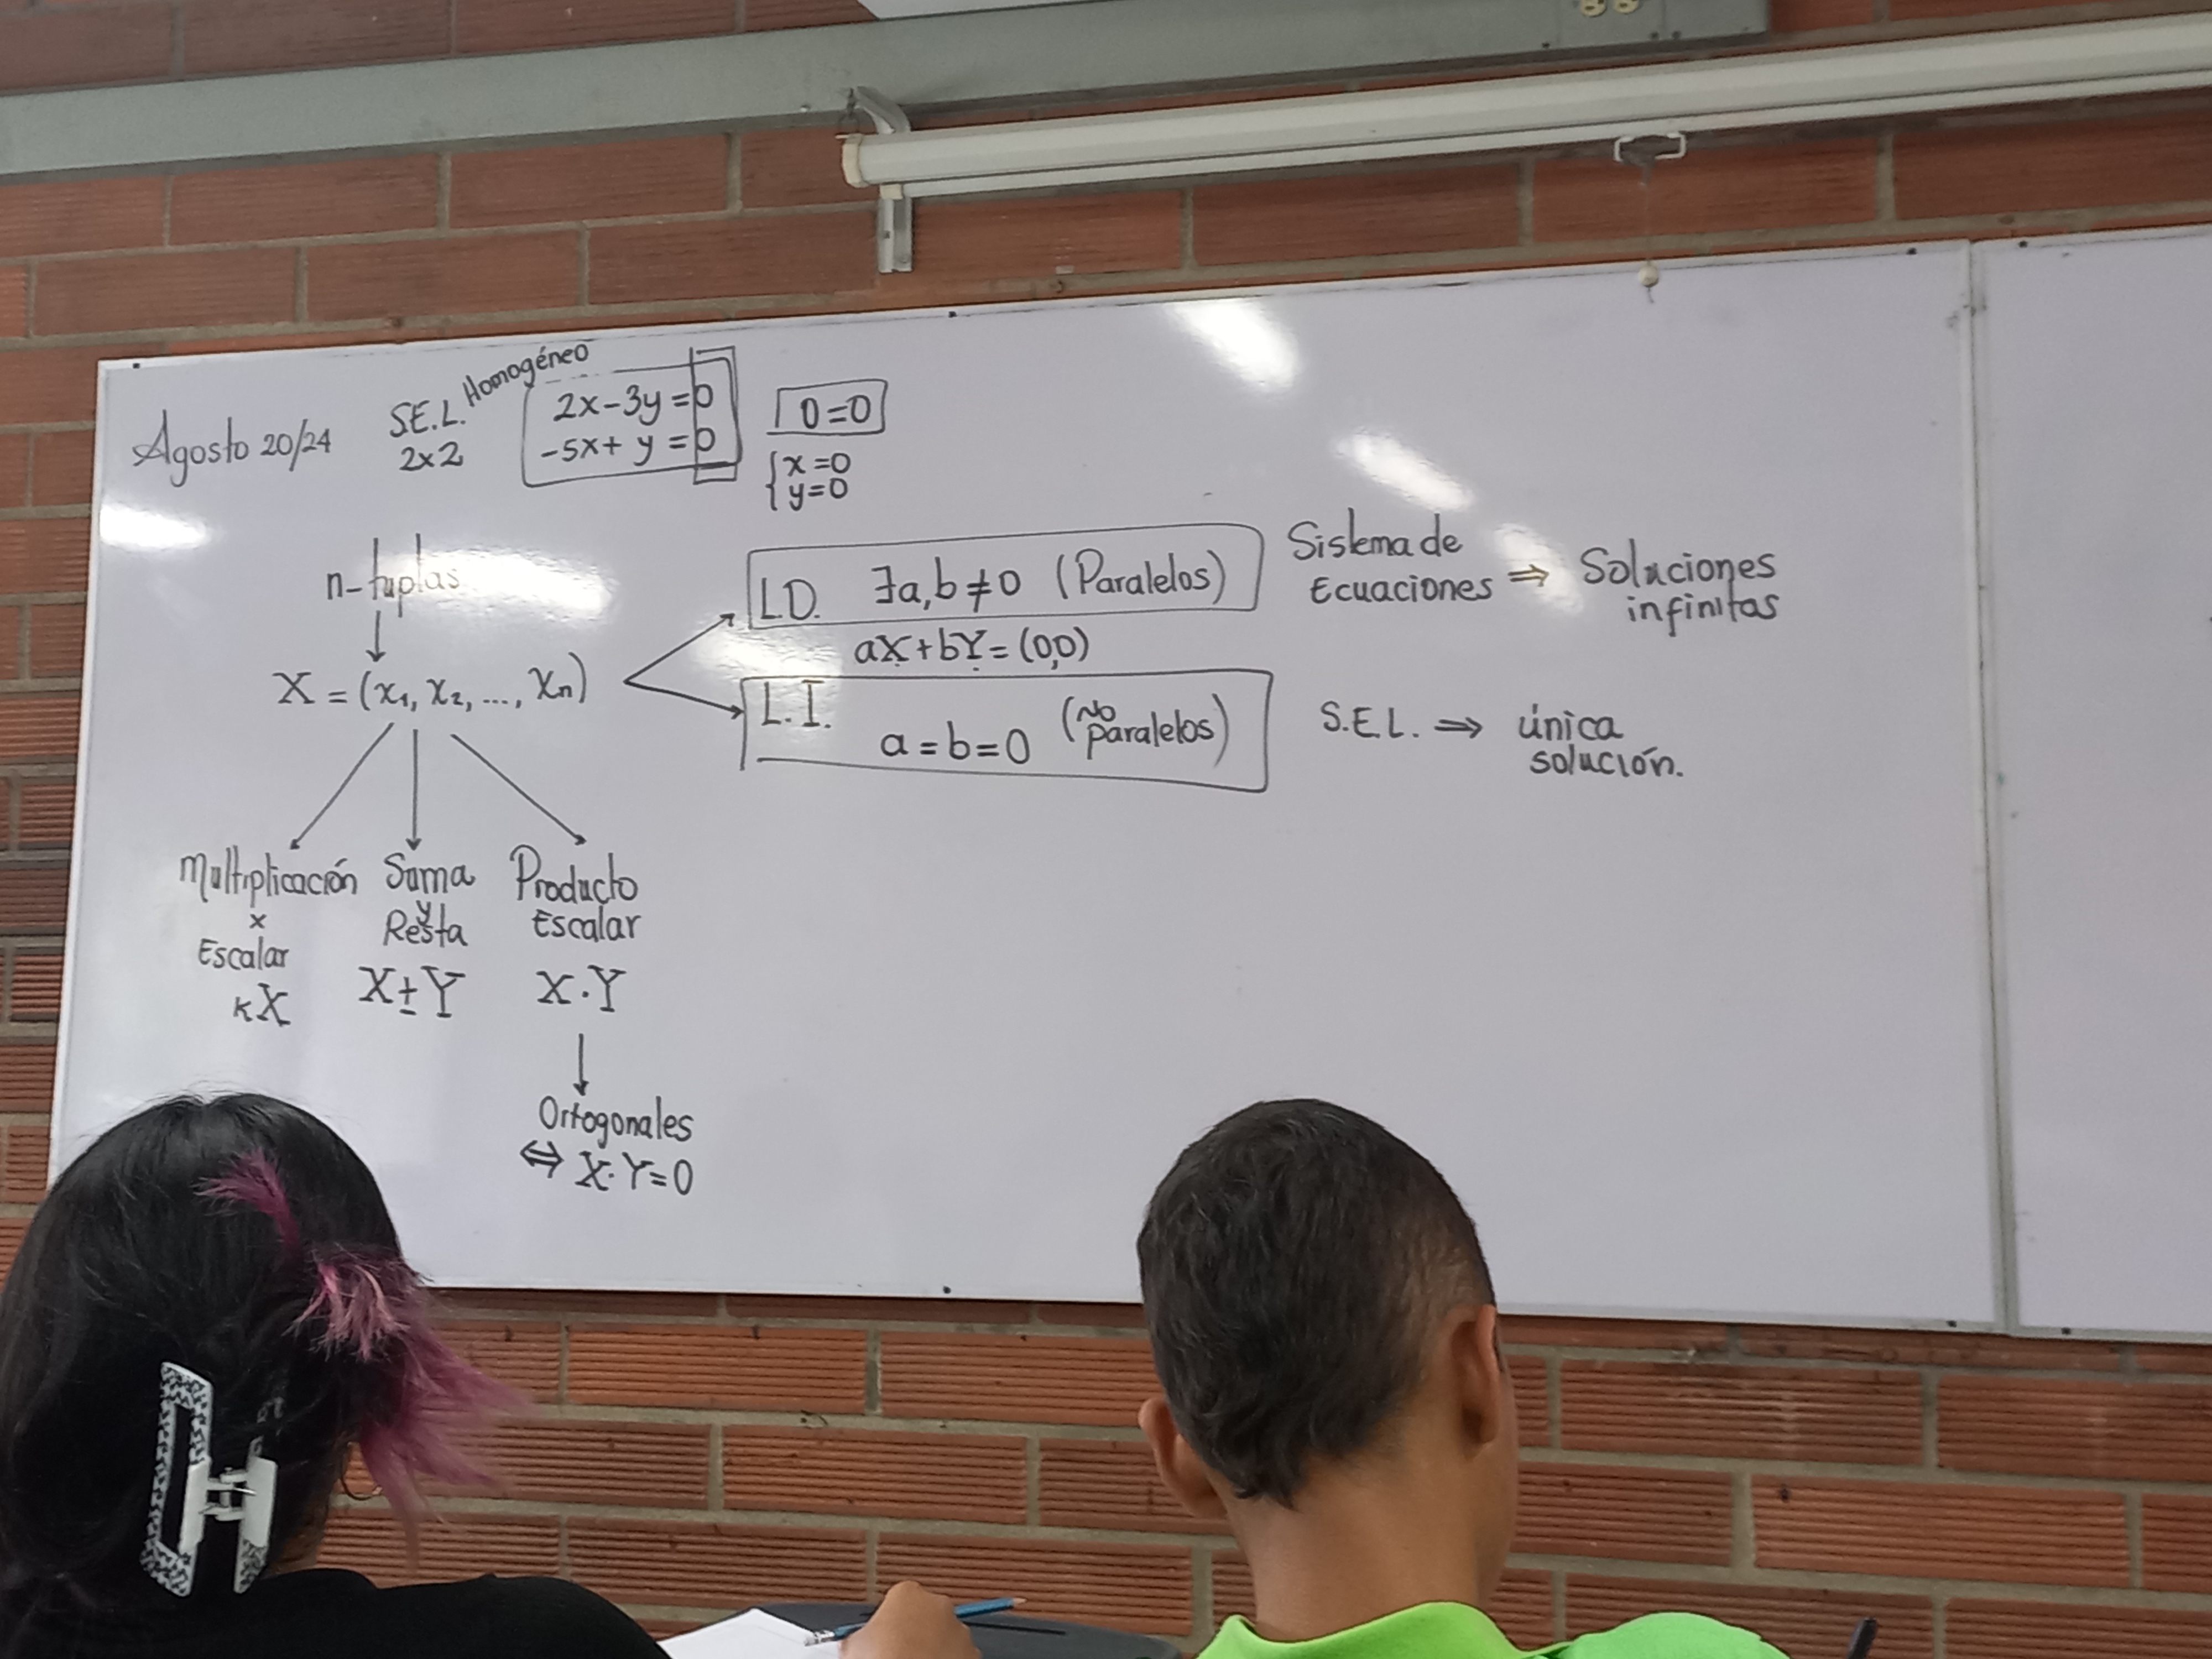 Agosto 20/24
S.E.L. Homogéneo
2x2
2x-3y=0
-5x+y=0
0=0
x=0
y=0
n-tuplas
X=(x₁, x₂, ..., xₙ)
L.D. ∃a,b≠0 (Paralelos)
aX+bY=(0,0)
L.I.
a=b=0 (No paralelos)
Sistema de
Ecuaciones ⇒ Soluciones
infinitas
S.E.L. ⇒ única
solución.
Multiplicación
x
Escalar
kX
Suma
y
Resta
X±Y
Producto
Escalar
X·Y
Ortogonales
⇔ X·Y=0